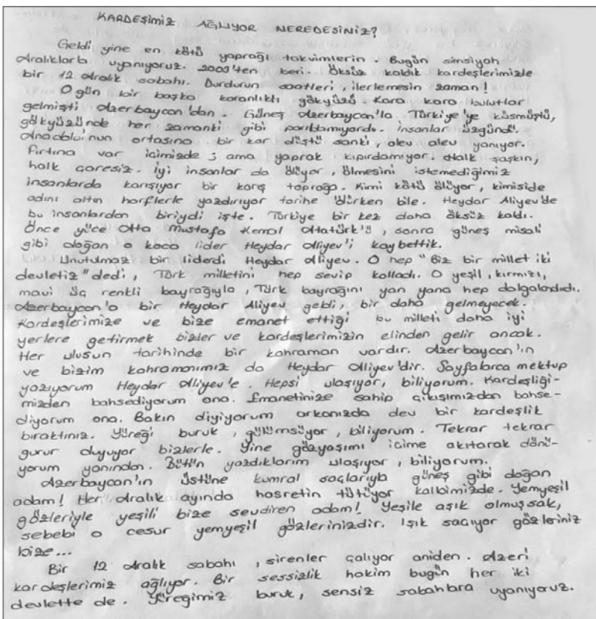 KARDEŞİMİZ AĞLIYOR NEREDESİNİZ?
Geldi yine en kötü yaprağı takvimlerin. Bugün simsiyah
Aralıklara uyanıyoruz. 2003'ten beri. Öksüz kaldık kardeşlerimizle
bir 12 Aralık sabahı. Durdurun saatleri, ilerlemesin zaman!
O gün bir başka karanlıktı gökyüzü. Kara kara bulutlar
gelmişti Azerbaycan'dan. Güneş Azerbaycan'la Türkiye'ye küsmüştü,
gökyüzünde her zamanki gibi parıldamıyordı. İnsanlar üzgündü.
Anadolu'nun ortasına bir kar düştü sanki, alev alev yanıyor.
Fırtına var içimizde ; ama yaprak kıpırdamıyor. Halk şaşkın,
halk çaresiz. İyi insanlar da ölüyor, ölmesini istemediğimiz
insanlarda karışıyor bir karış toprağa. Kimi kötü ölüyor, kimiside
adını altın harflerle yazdırıyor tarihe ölürken bile. Heydar Aliyev'de
bu insanlardan biriydi işte. Türkiye bir kez daha öksüz kaldı.
Önce yüce Ata Mustafa Kemal Atatürk'ü, sonra güneş misali
gibi doğan o koca lider Heydar Aliyev'i kaybettik.
Unutulmaz bir liderdi Heydar Aliyev. O hep "Biz bir millet iki
devletiz" dedi, Türk milletini hep sevip kolladı. O yeşil, kırmızı,
mavi üç renkli bayrağıyla, Türk bayrağını yan yana hep dalgalandırdı.
Azerbaycan'a bir Heydar Aliyev geldi, bir daha gelmeyecek.
Kardeşlerimize ve bize emanet ettiği bu milleti daha iyi
yerlere getirmek bizler ve kardeşlerimizin elinden gelir ancak.
Her ulusun tarihinde bir kahraman vardır. Azerbaycan'ın
ve bizim kahramanımız da Heydar Aliyev'dir. Sayfalarca mektup
yazıyorum Heydar Aliyev'e. Hepsi ulaşıyor, biliyorum. Kardeşliği-
mizden bahsediyorum ona. Emanetinize sahip çıkışımızdan bahse-
diyorum ona. Bakın diyiyorum arkanızda dev bir kardeşlik
bıraktınız. Yüreği buruk, gülümsüyor, biliyorum. Tekrar tekrar
gurur duyuyor bizlerle. Yine gözyaşımı içime akıtarak dönü-
yorum yanından. Bütün yazdıklarım ulaşıyor, biliyorum.
Azerbaycan'ın üstüne kumral saçlarıyla güneş gibi doğan
adam! Her Aralık ayında hasretin tütüyor kalbimizde. Yemyeşil
gözleriyle yeşili bize sevdiren adam! Yeşile aşık olmuşsak,
sebebi o cesur yemyeşil gözlerinizdir. Işık saçıyor gözleriniz
bize...
Bir 12 Aralık sabahı, sirenler çalıyor aniden. Azeri
kardeşlerimiz ağlıyor. Bir sessizlik hakim bugün her iki
devlette de. Yüreğimiz buruk, sensiz sabahlara uyanıyoruz.